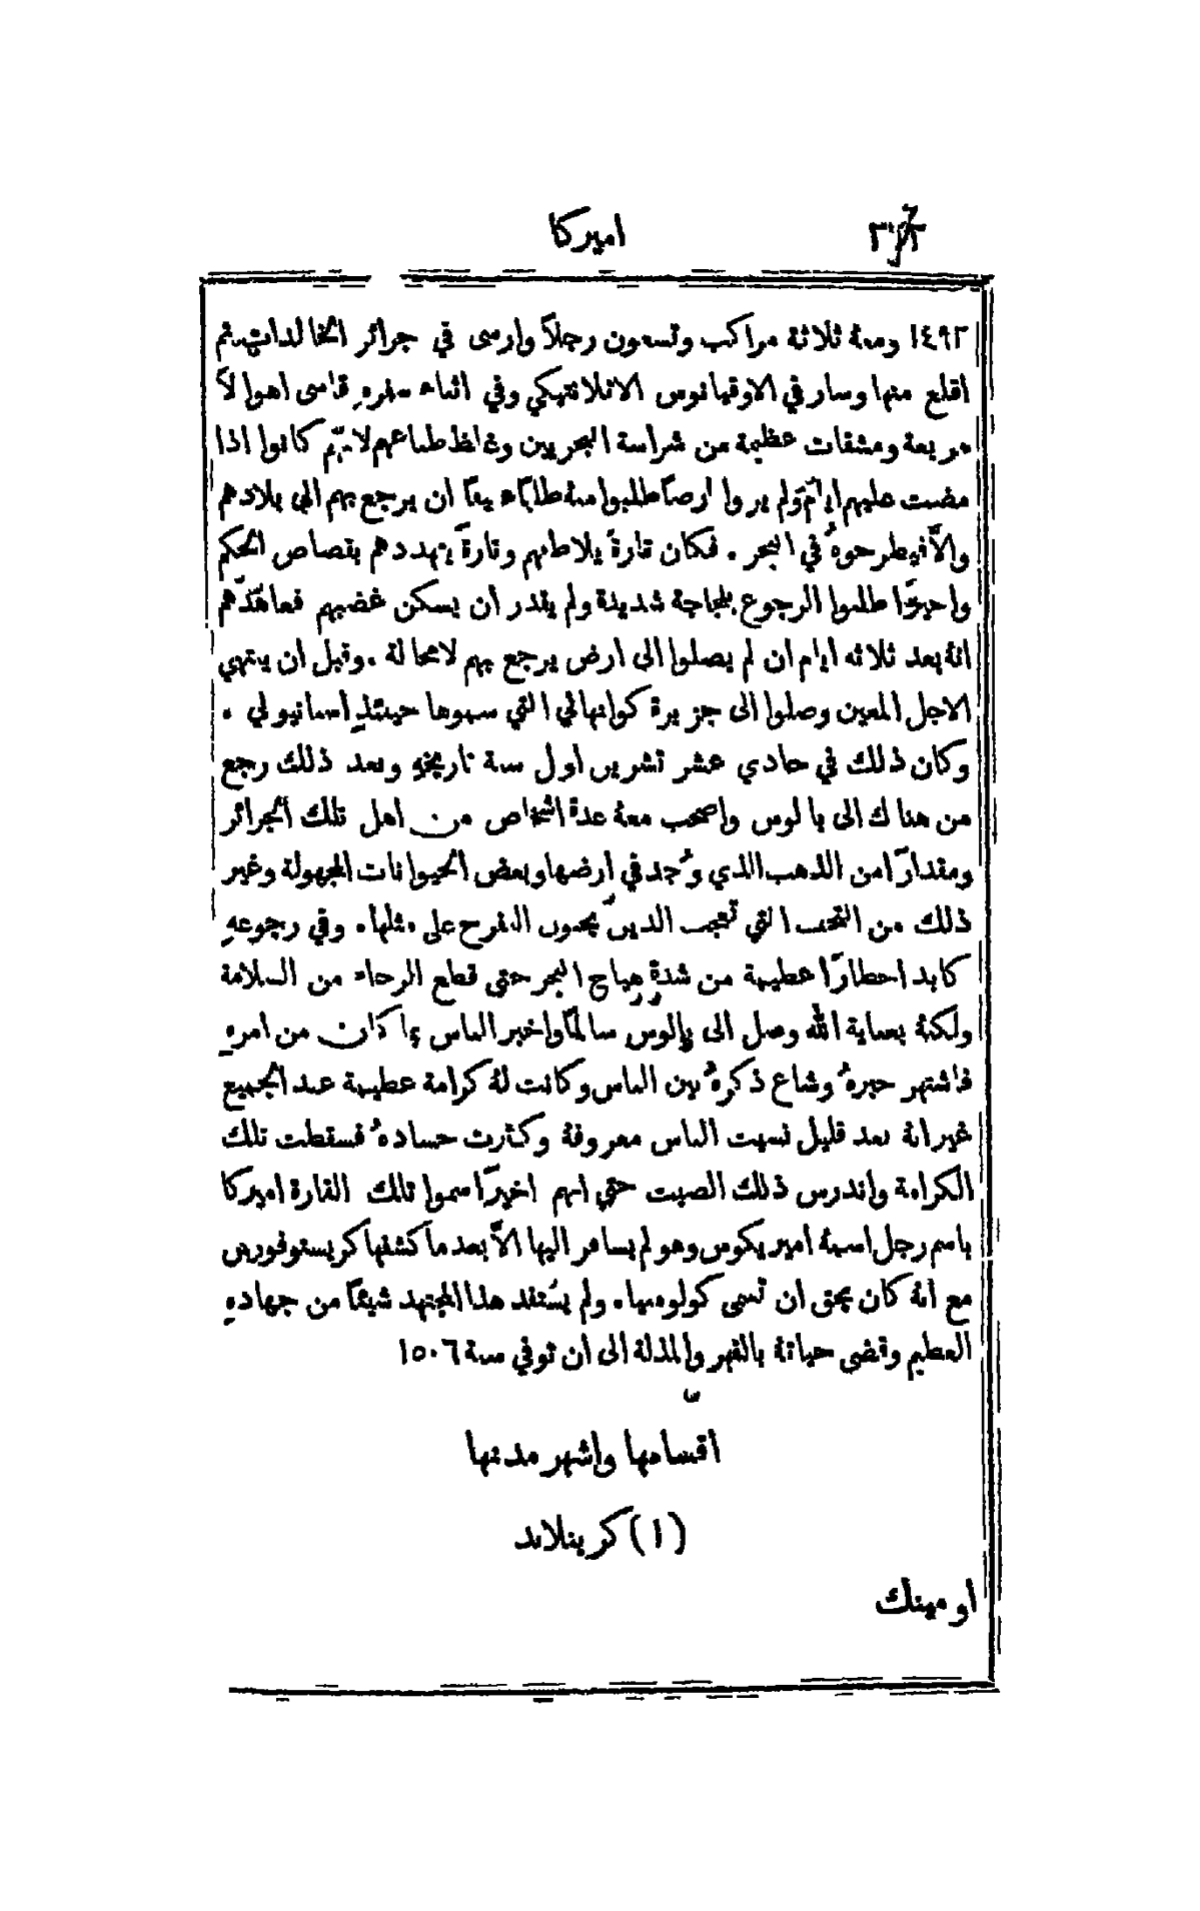 اميركا
١٤٩٢ ومعهُ ثلاثة مراكب وتسعون رجلاً وارسى في جزائر الخالدات ثم
اقلع منها وسار في الاوقيانوس الاتلانتيكي وفي اثناء سفرهِ قاسى اهوالاً
مريعة ومشقات عظيمة من شراسة البحريين وغلاظ طباعهم لانهم كانوا اذا
مضت عليهم ايامٌ ولم يروا ارضًا طلبوا منهُ طلبًا عنيفًا ان يرجع بهم الى بلادهم
والاَّ فيطرحوهُ في البحر . فكان تارةً يلاطفهم وتارةً يتهددهم بقصاص الحكم
واخيرًا طلبوا الرجوع بلجاجة شديدة ولم يقدر ان يسكن غضبهم فعاهدهم
انهُ بعد ثلاثه ايام ان لم يصلوا الى ارض يرجع بهم لا محالة . وقبل ان ينتهي
الاجل المعين وصلوا الى جزيرة كوانهاني التي سموها حينئذٍ اسبانيولي .
وكان ذلك في حادي عشر تشرين اول سنة تاريخهِ وبعد ذلك رجع
من هناك الى بالوس واصحب معهُ عدة اشخاص من اهل تلك الجزائر
ومقدارًا من الذهب الذي وُجد في ارضها وبعض الحيوانات المجهولة وغير
ذلك من التحف التي تعجب الذين يحبون التفرج على مثلها . وفي رجوعهِ
كابد اخطارًا عظيمة من شدة هياج البحر حتى قطع الرجاء من السلامة
ولكنهُ بعناية الله وصل الى بالوس سالمًا واخبر الناس بما كان من امرهِ
فاشتهر خبرهُ وشاع ذكرهُ بين الناس وكانت لهُ كرامة عظيمة عند الجميع
غير انهُ بعد قليل نسيت الناس معروفهُ وكثرت حسادهُ فسقطت تلك
الكرامة واندرس ذلك الصيت حتى انهم اخيرًا سموا تلك القارة اميركا
باسم رجل اسمهُ اميريكوس وهو لم يسافر اليها الاَّ بعد ما كشفها كريستوفورس
مع انهُ كان يحق ان تسمى كولومبيا . ولم يستفد هذا المجتهد شيئًا من جهادهِ
العظيم وقضى حياتهُ بالقهر والمذلة الى ان توفي سنة ١٥٠٦
اقسامها واشهر مدنها
(١) كرينلاند
او مينك